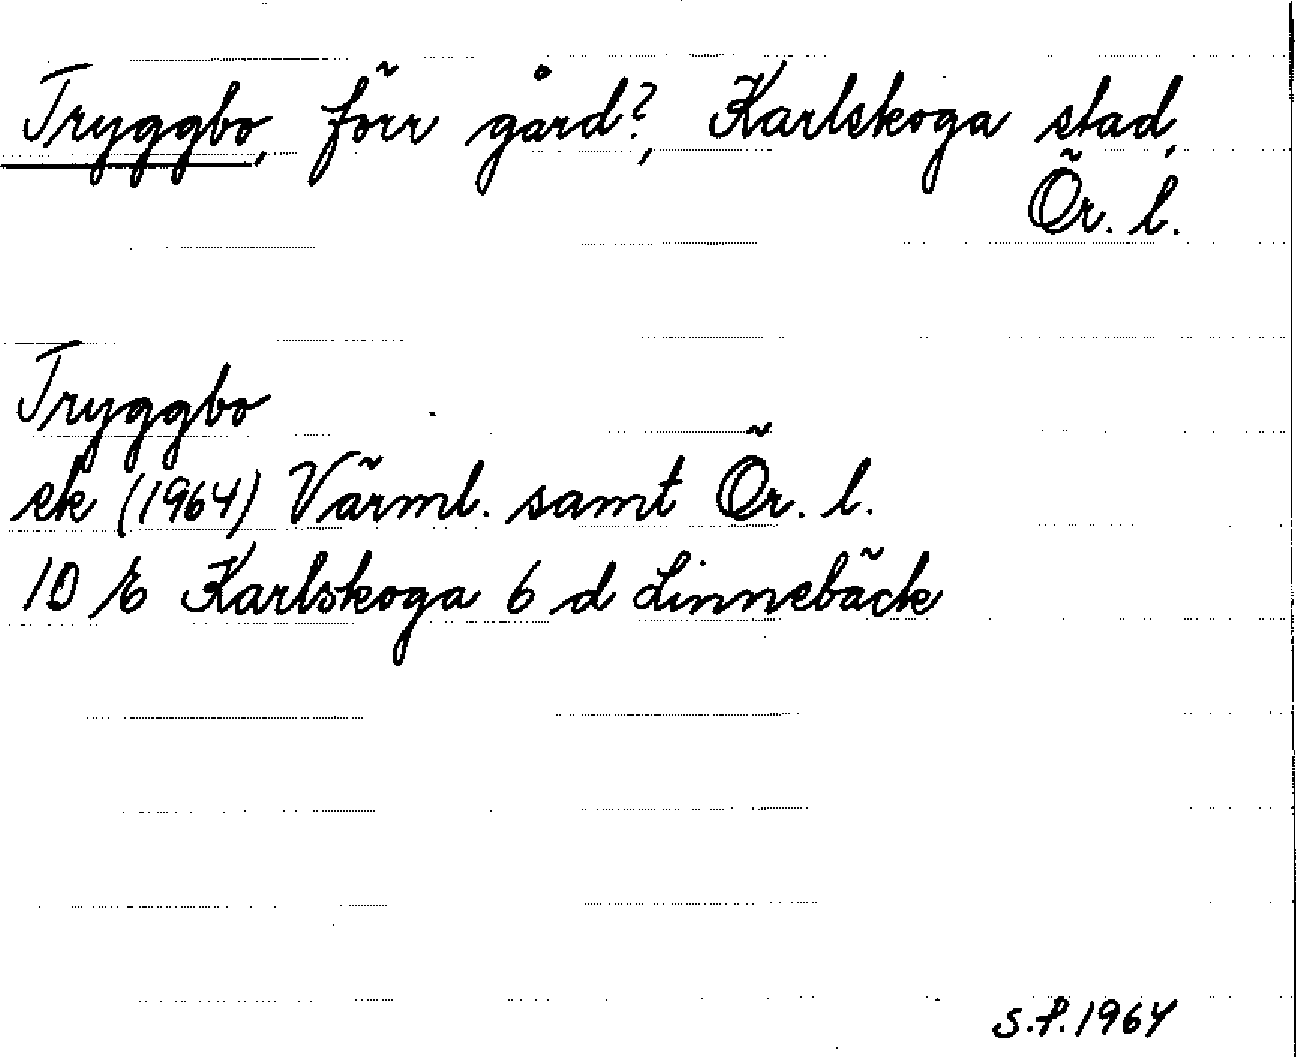 Tryggbo, förr gård?, Karlskoga stad,
Ör. l.
Tryggbo
ek (1964) Värml. samt Ör. l.
10 E Karlskoga 6 d Linnebäck
S.F. 1964